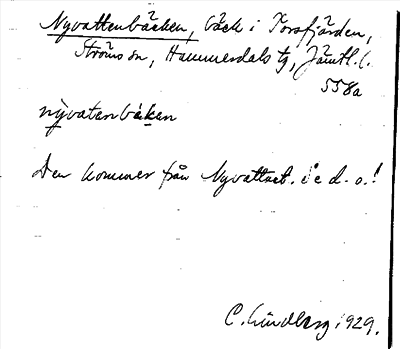 Nyvattenbäcken, bäck i Torsfjärden,
Ströms sn, Hammerdals tg, Jämtl. l.
558a
nỳvatenbäken
Den kommer från Nyvattnet. i e d. o.!
C. Lindberg 1929.